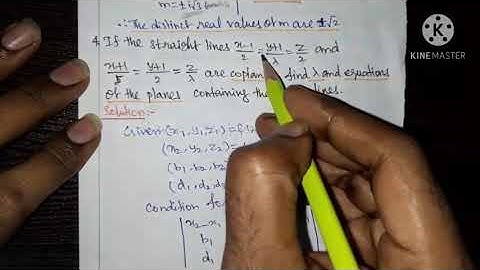 m = ±
∴ The distinct real values of m are ±√2
4. If the straight lines x-1/2 = y+1/λ = z/2 and
x+1/5 = y+1/2 = z/λ are coplan find λ and equations
of the planes containing the lines.
Solution:-
Given (x₁, y₁, z₁) =
(x₂, y₂, z₂) =
(b₁, b₂, b
(d₁, d₂, d
condition fo
x₂-x₁
b₁
d₁
KINEMASTER